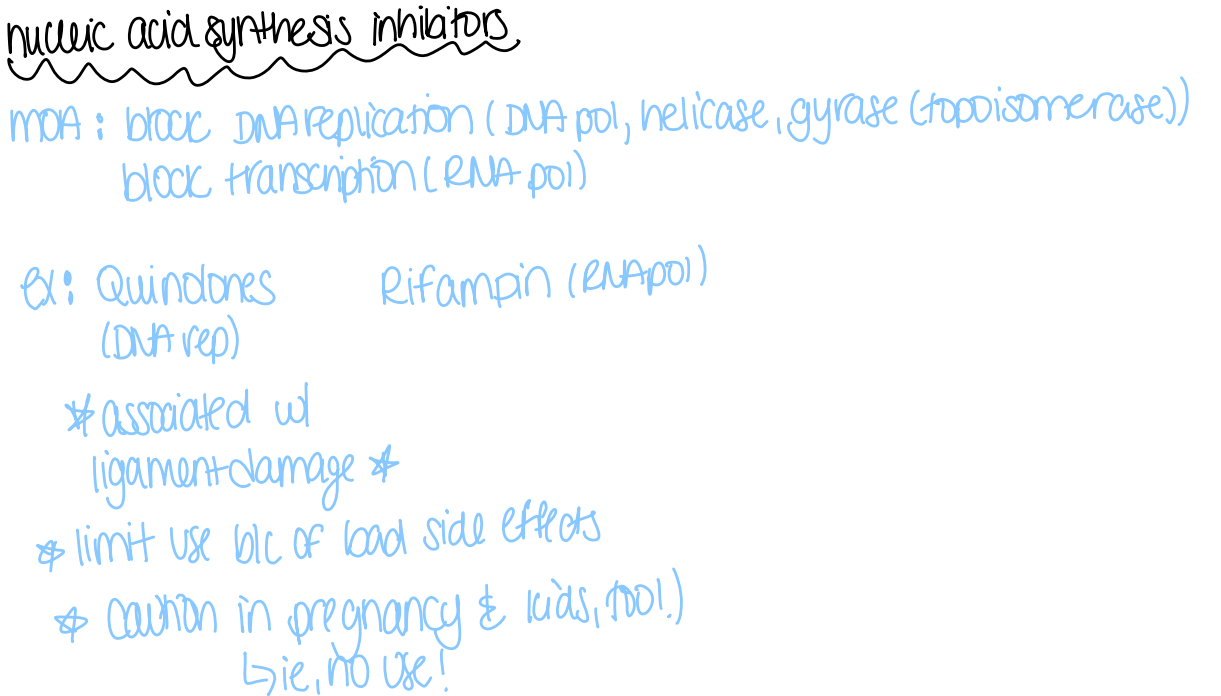 nucleic acid synthesis inhibitors
MOA: block DNA replication (DNA pol, helicase, gyrase (topoisomerase))
block transcription (RNA pol)
ex: Quinolones Rifampin (RNA pol)
(DNA rep)
* associated w/
ligament damage *
* limit use b/c of bad side effects
* caution in pregnancy & kids, too!)
↳ ie, no use!